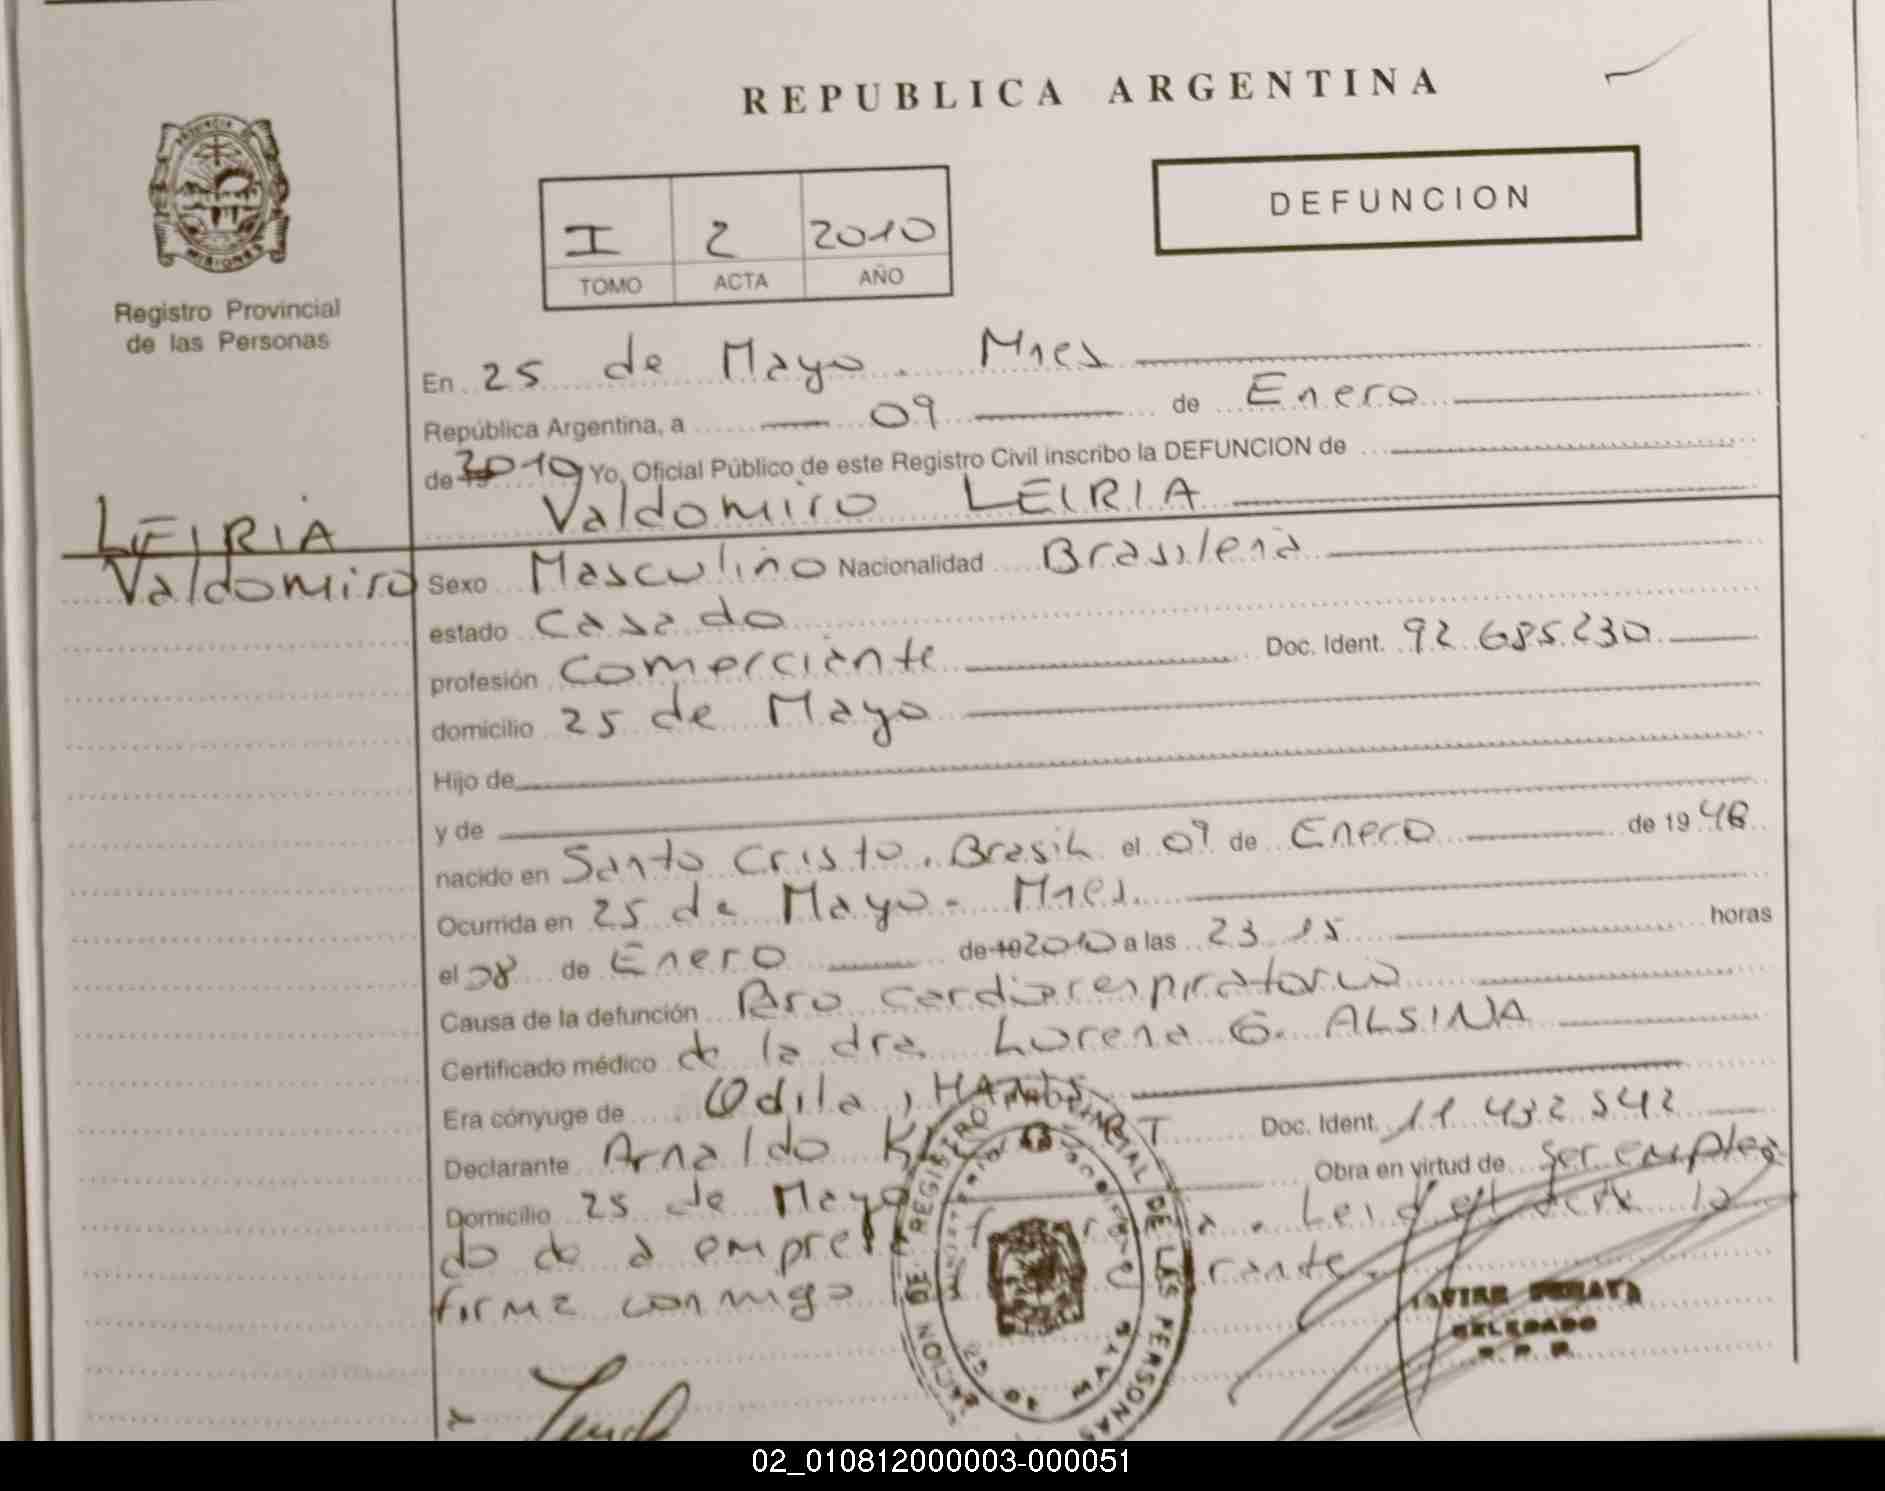 REPUBLICA ARGENTINA
DEFUNCION
I 2 2010
TOMO ACTA AÑO
PROVINCIA DE
MISIONES
Registro Provincial
de las Personas
LEIRIA
Valdomiro
En 25 de Mayo. Mnes
República Argentina, a 09 de Enero
de 2010 Yo, Oficial Público de este Registro Civil inscribo la DEFUNCION de
Valdomiro LEIRIA
Sexo Masculino Nacionalidad Brasilena
estado Casado
profesión Comerciante Doc. Ident. 92.685.230
domicilio 25 de Mayo
Hijo de
y de
nacido en Santo Cristo. Brasil el 09 de Enero de 1948
Ocurrida en 25 de Mayo. Mnes.
el 08 de Enero de 19 2010 a las 23 15 horas
Causa de la defunción Paro cardiorespiratorio
Certificado médico de la dra. Lorena G. ALSINA
Era cónyuge de Odila,
Declarante Arnaldo Doc. Ident. 11 432 542
Domicilio 25 de Mayo Obra en virtud de Ser emplea
do de a empresa Leid el acta la
firma conmigo
REGISTRO PROVINCIAL DE LAS PERSONAS
25 DE MAYO
DELEGADO
R. P. P.
02_010812000003-000051